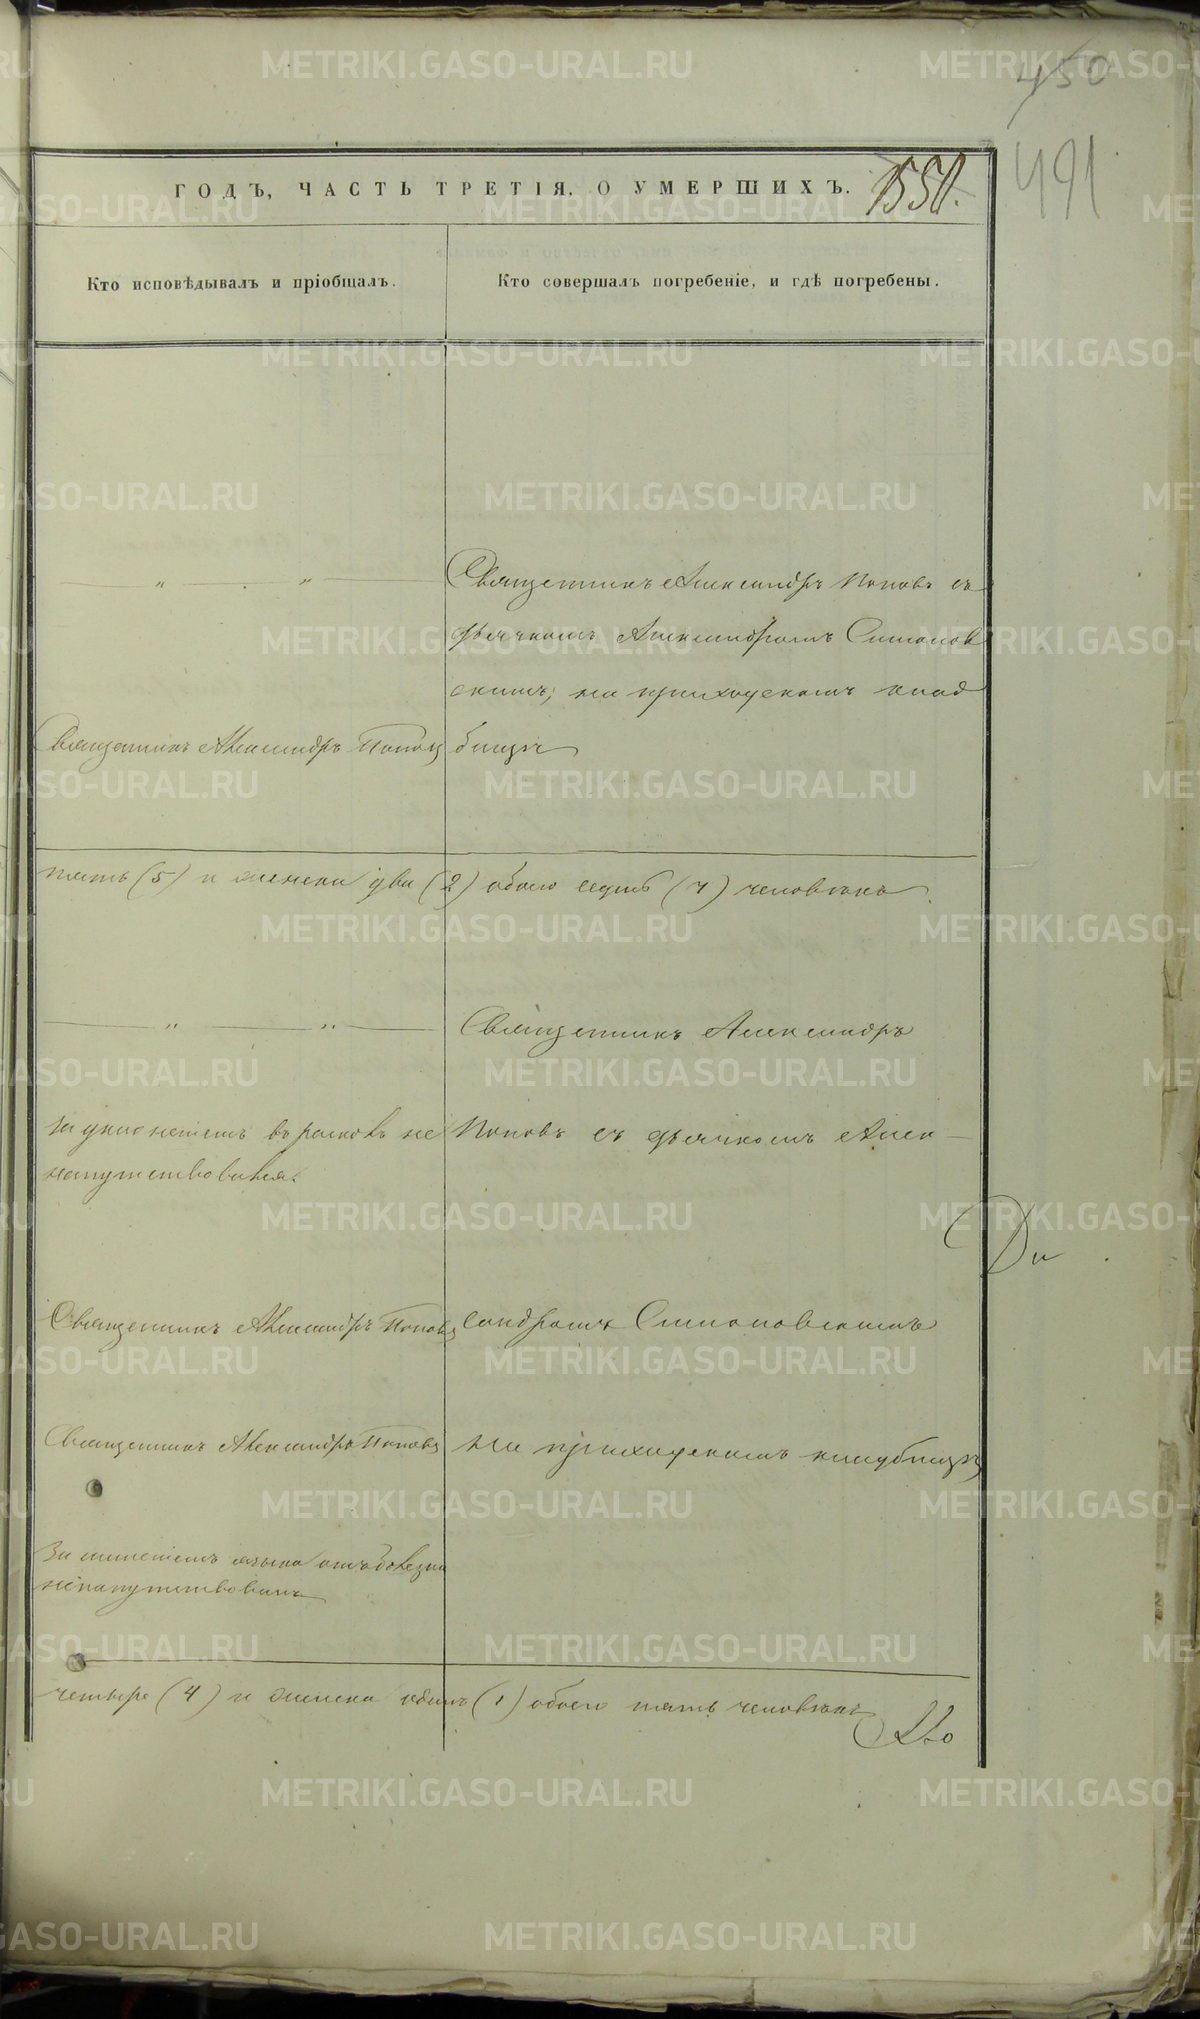 450
491
ГОДЪ, ЧАСТЬ ТРЕТІЯ, О УМЕРШИХЪ. 1550.
Кто исповѣдывалъ и пріобщалъ.
Кто совершалъ погребеніе, и гдѣ погребены.
Священникъ Александръ Поповъ съ
дьячкомъ Александромъ Симонов
скимъ, на приходскомъ клад
Священникъ Александръ Поповъ
бищѣ
пять (5) и женска два (2) обоего седмь (7) человѣкъ
Священникъ Александръ
За уклоненіемъ въ расколъ не
напутствована.
Поповъ съ дьячкомъ Алек-
Ди
Священникъ Александръ Поповъ
сандромъ Симоновскимъ
Священникъ Александръ Поповъ
на приходскомъ кладбищѣ
За отнятіемъ языка отъ болезни
не напутствованъ
четыре (4) и женска одинъ (1) обоего пять человѣкъ
METRIKI.GASO-URAL.RU